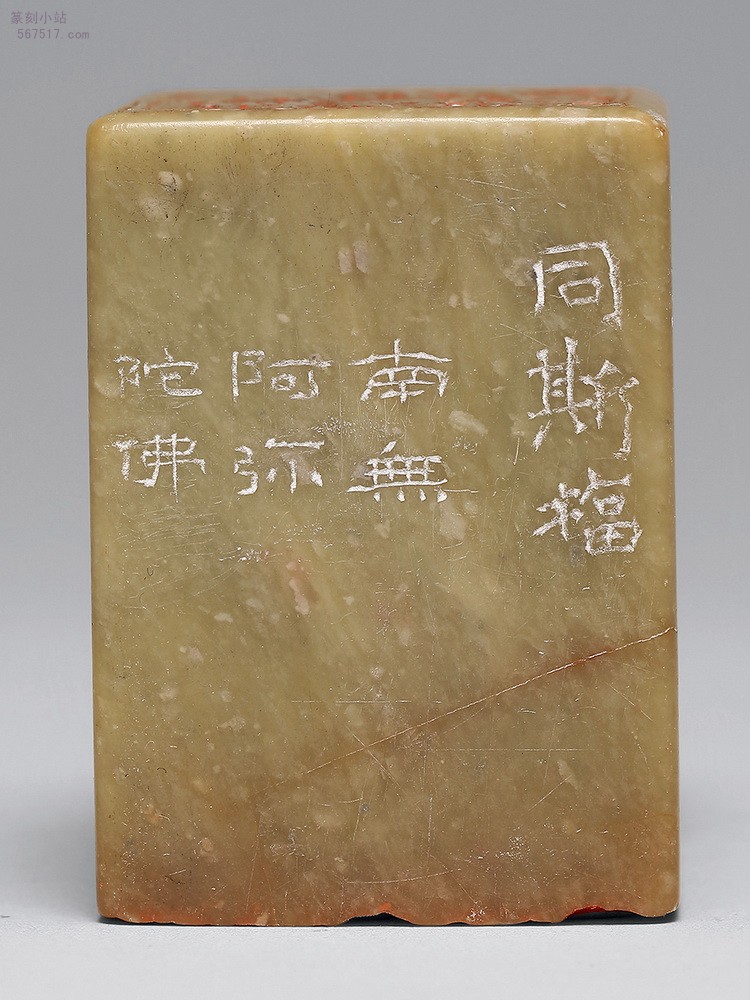 篆刻小站
567517.com
同斯福
南無
阿弥
陀佛